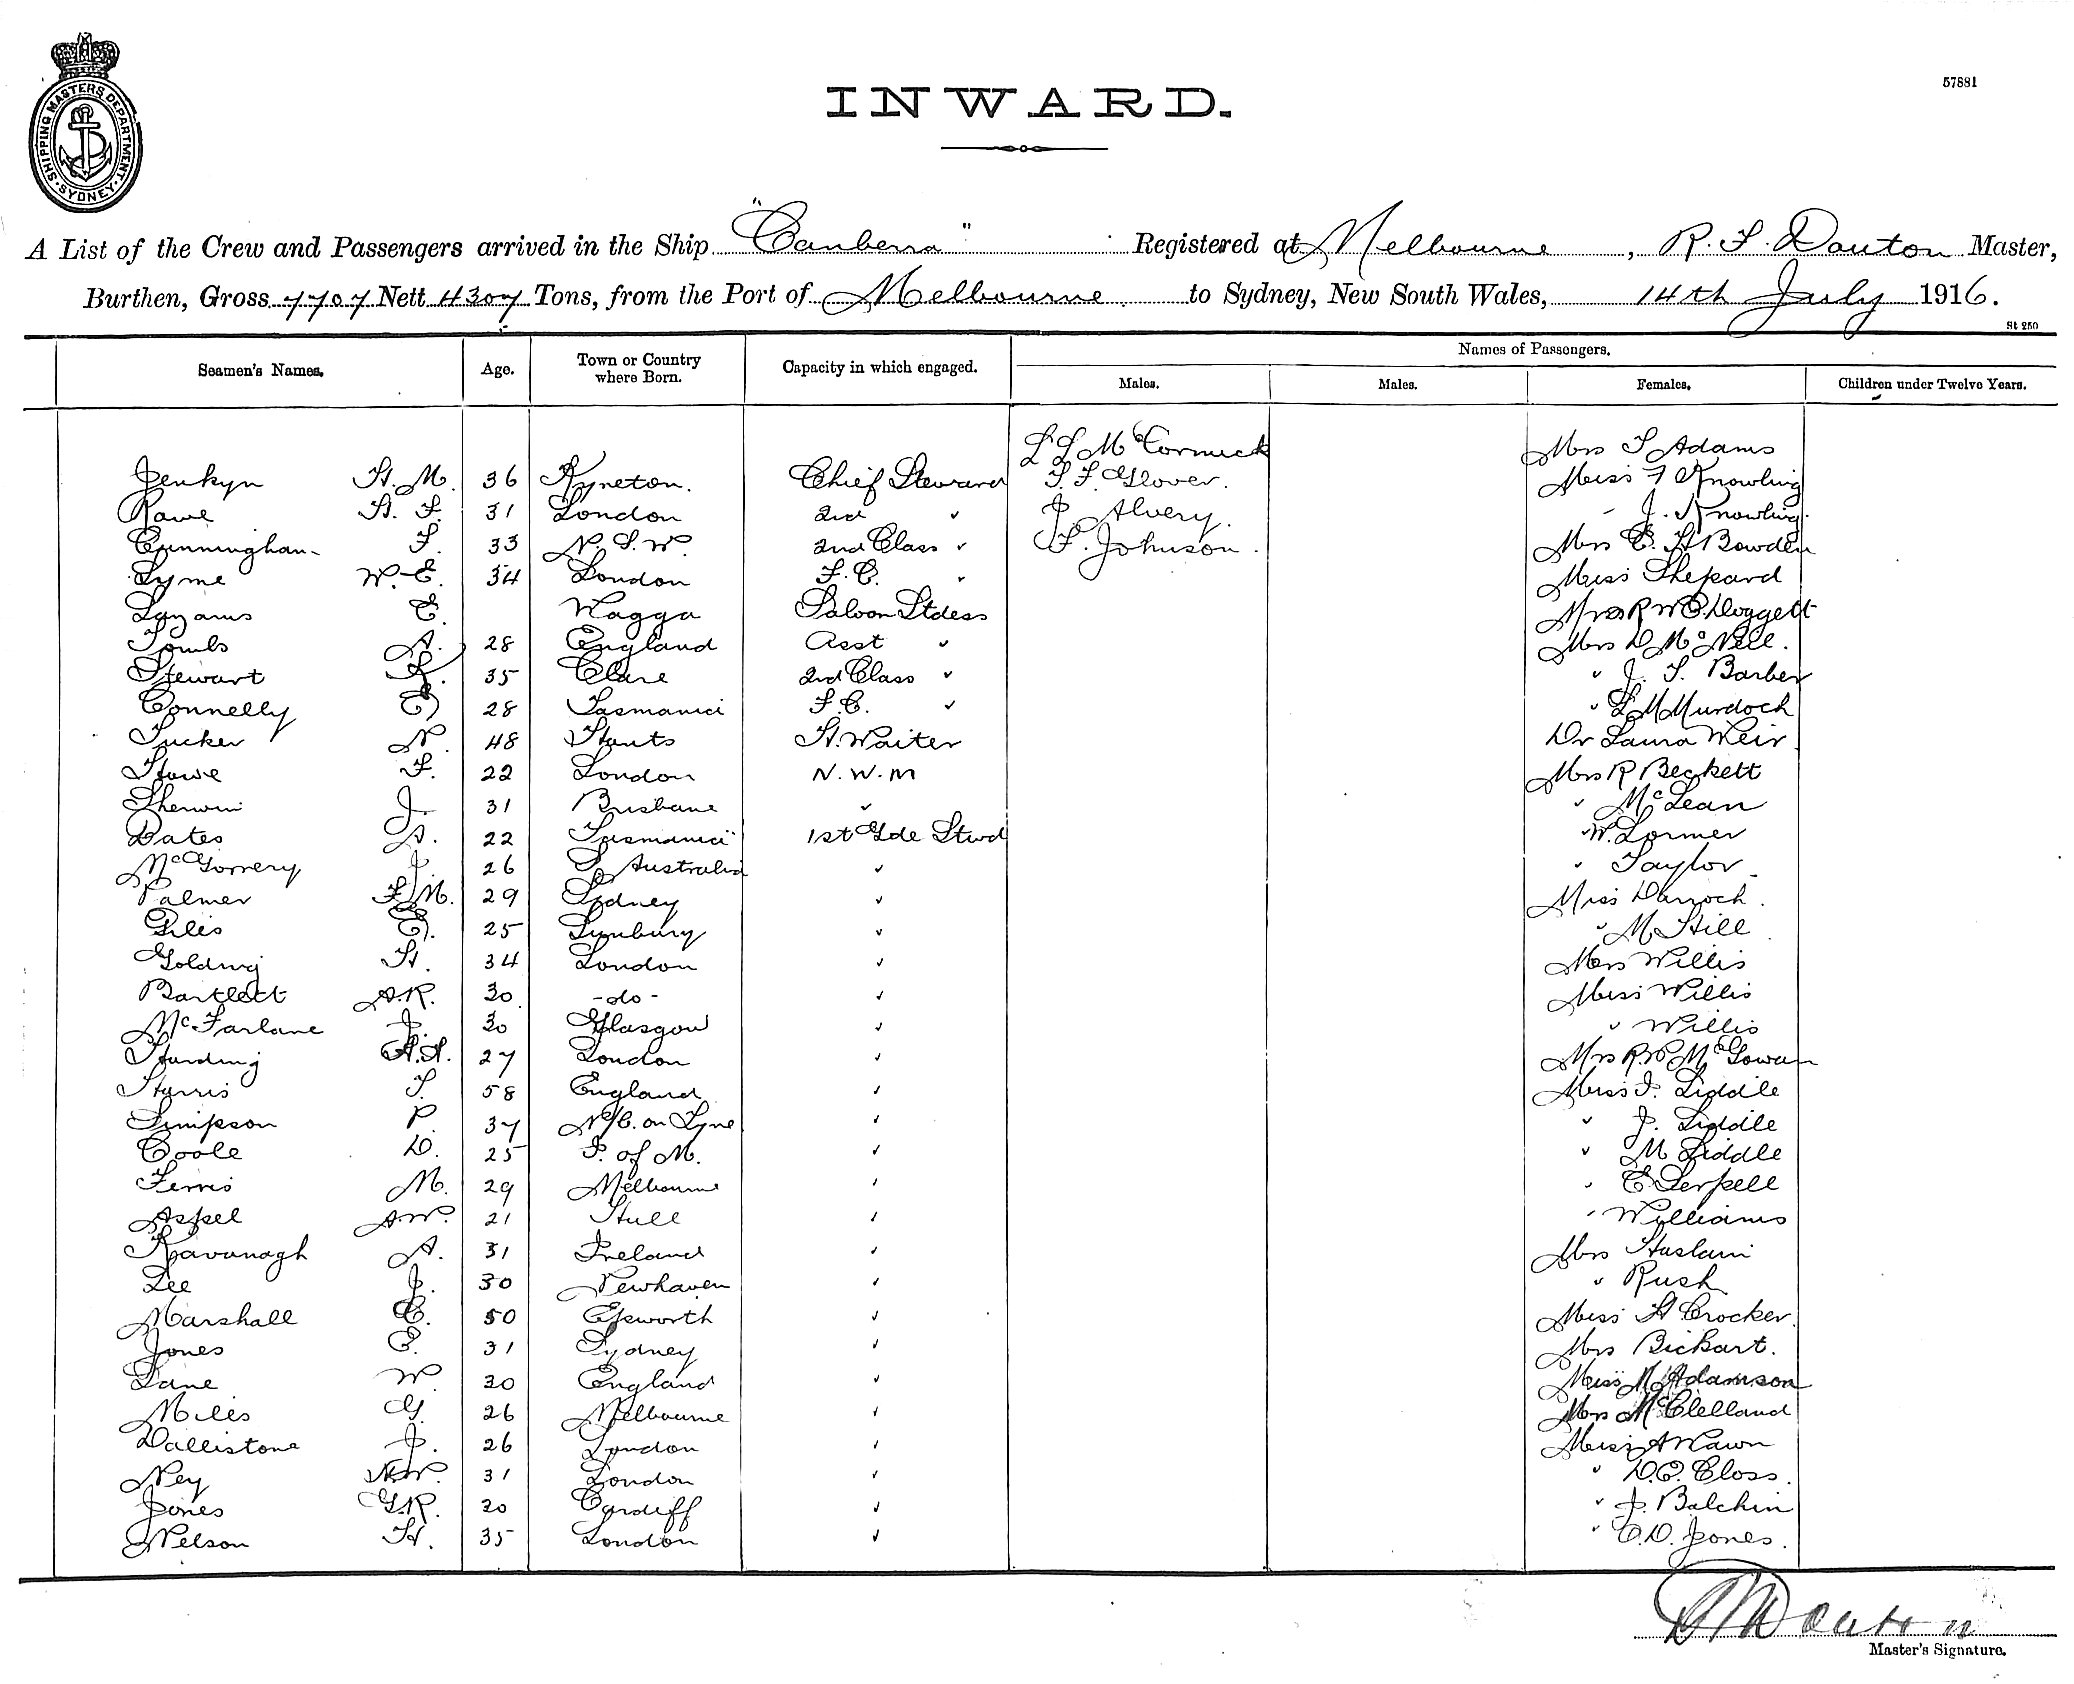 SHIPPING MASTERS DEPARTMENT · SYDNEY ·
57881
INWARD.
A List of the Crew and Passengers arrived in the Ship "Canberra" Registered at Melbourne, R. F. Douton Master,
Burthen, Gross 7707 Nett 4307 Tons, from the Port of Melbourne to Sydney, New South Wales, 14th July 1916.
St 250
Names of Passengers.
Seamen's Names. Age. Town or Country where Born. Capacity in which engaged. Males. Males. Females. Children under Twelve Years.
L L McCormick Mrs S Adams
Jenkyn H. M. 36 Kyneton. Chief Steward F. F. Glover. Miss F Knowling
Rawe H. F. 31 London 2nd " J Alvery. " J. Knowling.
Cunningham F. 33 N. S. W. 2nd Class " F. Johnson. Mrs E. H Bowden
Lyme W. E. 34 London F. C. " Miss Shepard
Layams E. Wagga Saloon Stdess Mrs R W C. Doggett
Tombs A. 28 England Asst " Mrs D McNeil.
Stewart K. 35 Clare 2nd Class " " J. S. Barber
Connelly E 28 Tasmania F. C. " " L M Murdoch
Tucker N. 48 Hants H. Waiter Dr Laura Weir
Howe F. 22 London N. W. M Mrs R Beckett
Sherwin J. 31 Brisbane " " McLean
Bates A. 22 Tasmania 1st Gde Stwd " W. Lormer
McGorrery J 26 S Australia " " Taylor
Palmer F. M. 29 Sydney " Miss Darroch.
Giles E. 25 Sunbury " " M Hill
Golding H. 34 London " Mrs Willis
Bartlett A. R. 30 -do- " Miss Willis
McFarlane J. 30 Glasgow " " Willis
Harding A. A. 27 London " Mrs R. W McGowan
Harris S. 58 England " Miss I. Liddle
Simpson P. 37 N/C. on Tyne " " J. Liddle
Coole D. 25 I. of M. " " M Liddle
Ferris M. 29 Melbourne " " E Serpell
Aspel A. W. 21 Hull " " Williams
Kavanagh A. 31 Ireland " Mrs Haslam
Lee J. 30 Newhaven " " Rush
Marshall C. 50 Epworth " Miss H Crocker.
Jones E. 31 Sydney " Mrs Bickart.
Lane W 30 England " Miss M Adamson
Miles G. 26 Melbourne " Mrs McClelland
Dallistone J. 26 London " Miss A Nawn
Ney H. W. 31 London " " D. C. Closs.
Jones G. R. 30 Cardiff " " J. Balchin
Nelson H. 35 London " " C. D. Jones.
R F Douton
Master's Signature.